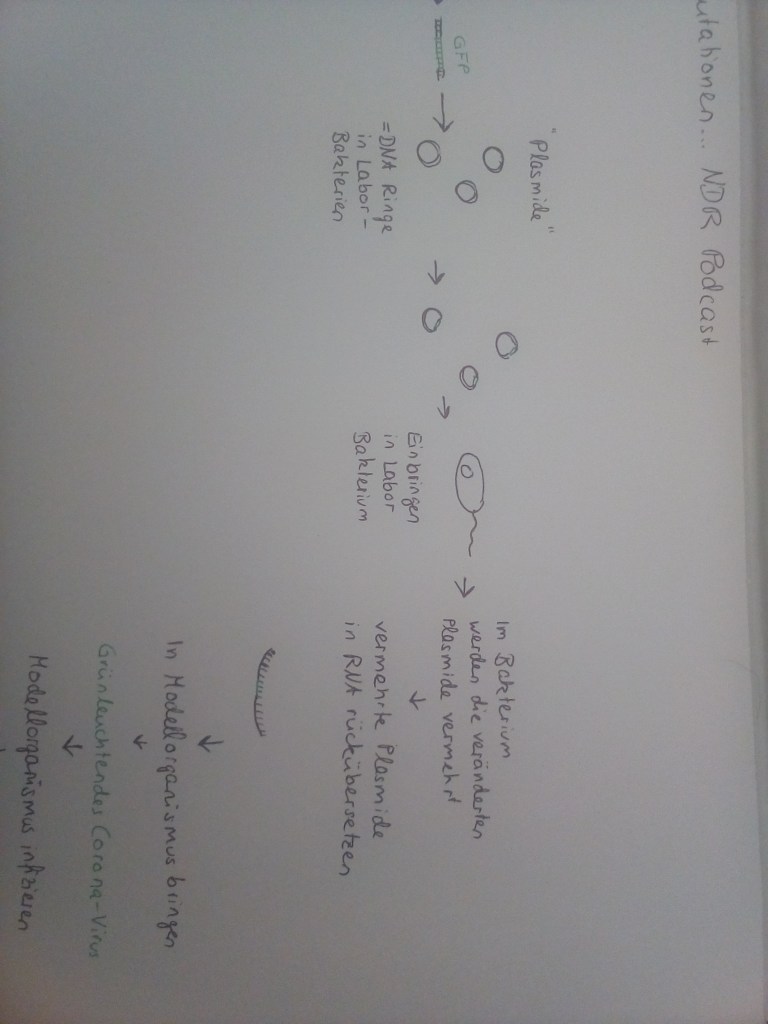 utationen... NDR Podcast
"Plasmide"
GFP
= DNA Ringe
in Labor-
Bakterien
Einbringen
in Labor
Bakterium
Im Bakterium
werden die veränderten
Plasmide vermehrt
vermehrte Plasmide
in RNA rückübersetzen
In Modellorganismus bringen
Grünleuchtendes Corona-Virus
Modellorganismus infizieren